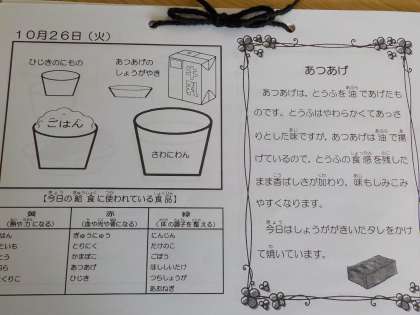 10月26日（火）
ひじきのにもの
あつあげの
しょうがやき
ごはん
さわにわん
【今日の給食に使われている食品】
黄
赤
緑
（血や肉や骨になる）
（体の調子を整える）
ぎゅうにゅう
とりにく
かまぼこ
あつあげ
ひじき
にんじん
たけのこ
ごぼう
ほししいたけ
つちしょうが
あおねぎ
あつあげ
あつあげは、とうふを油であげたも
のです。とうふはやわらかくてあっさ
りとした味ですが、あつあげは油で揚
げているので、とうふの食感を残した
まま香ばしさが加わり、味もしみこみ
やすくなります。
今日はしょうががきいたタレをかけ
て焼いています。